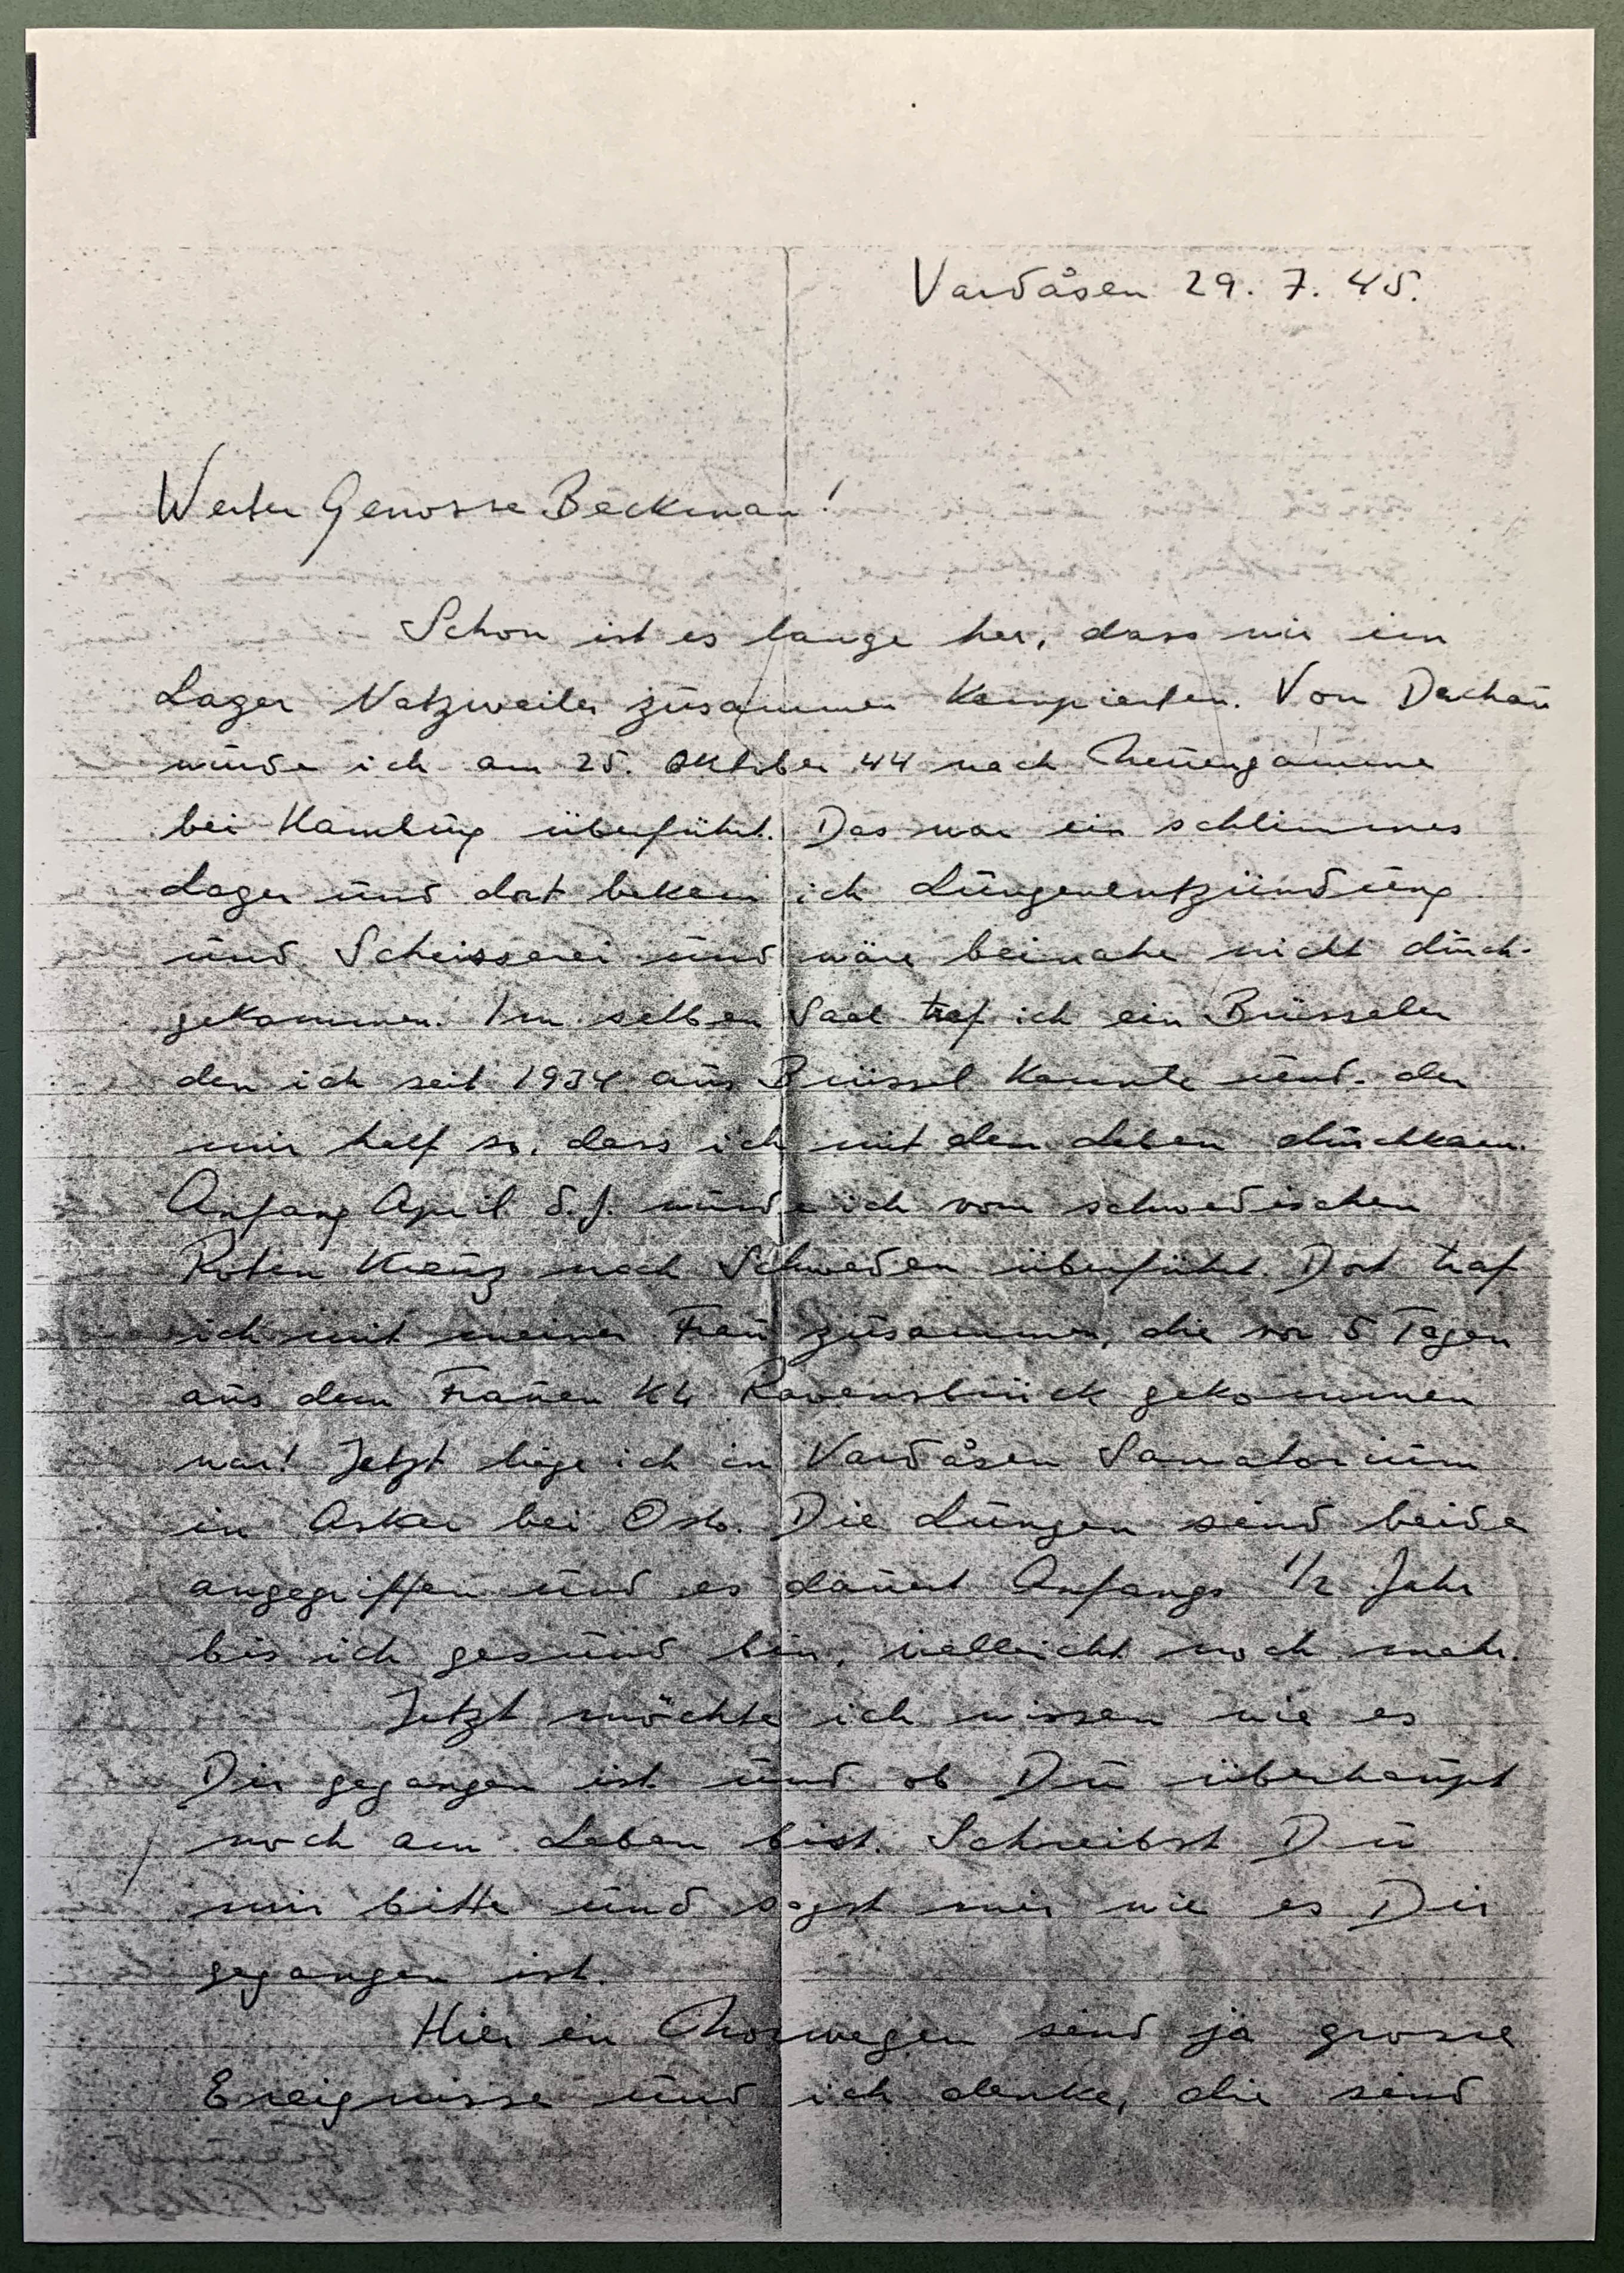 Vardåsen 29. 7. 45.
Werter Genosse Beckman!
Schon ist es lange her, dass wir im
Lager Natzweiler zusammen kampierten. Von Dachau
wurde ich am 25. Oktober 44 nach Neuengamme
bei Hamburg überführt. Das war ein schlimmes
Lager und dort bekam ich Lungenentzündung
und Scheisserei und wäre beinahe nicht durch-
gekommen. Im selben Saal traf ich ein Brüsseler
den ich seit 1934 aus Brüssel kannte und der
mir half so, dass ich mit dem Leben durchkam.
Anfang April d.J. wurde ich vom schwedischen
Roten Kreuz nach Schweden überführt. Dort traf
ich mit meiner Frau zusammen, die vor 5 Tagen
aus dem Frauen KL Ravensbrück gekommen
war! Jetzt liege ich in Vardåsen Sanatorium
in Asker bei Oslo. Die Lungen sind beide
angegriffen und es dauert Anfangs 1/2 Jahr
bis ich gesund bin, vielleicht noch mehr.
Jetzt möchte ich wissen wie es
Dir gegangen ist und ob Du überhaupt
noch am Leben bist. Schreibst Du
mir bitte und sagst mir wie es Dir
gegangen ist.
Hier in Norwegen sind ja grosse
Ereignisse und ich denke, die sind